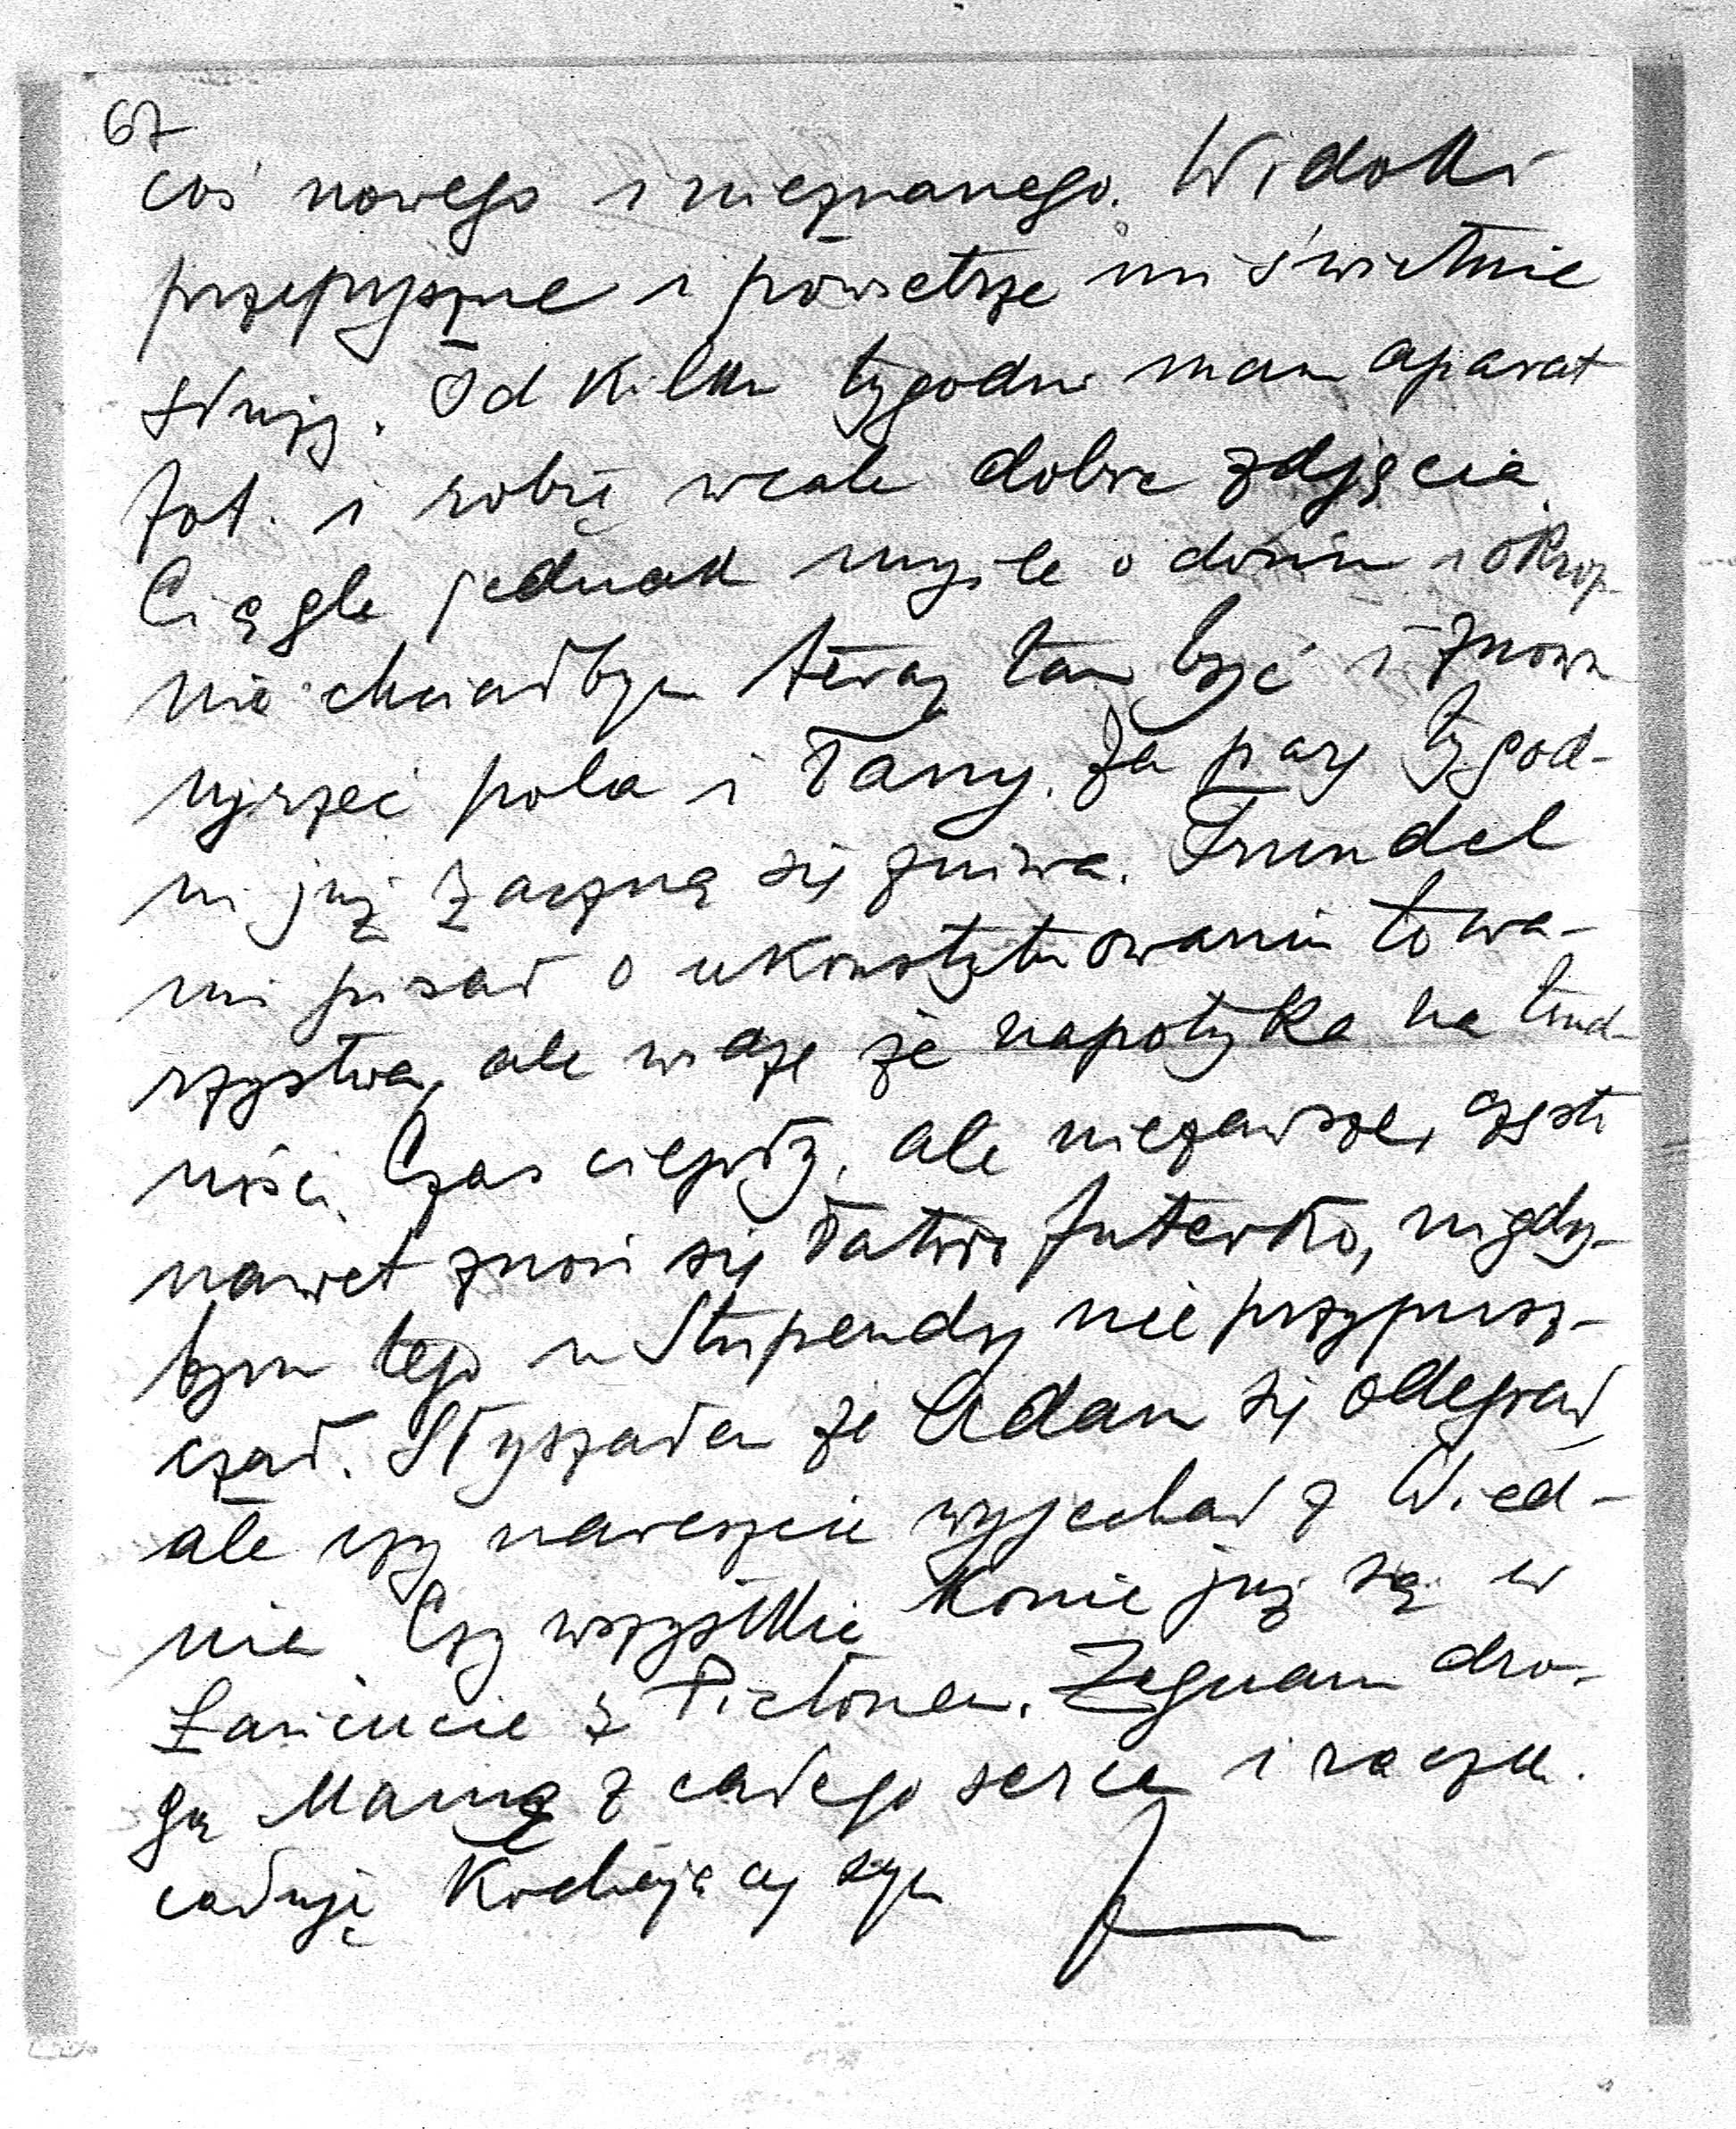 67
coś nowego i nieznanego. Widoki
przepyszne i powietrze mi świetnie
służy. Od kilku tygodni mam aparat
fot. i robię wcale dobre zdjęcia.
Ciągle jednak myślę o domu i okrop-
nie chciałbym teraz tam być i znowu
ujrzeć pola i łany. Za parę tygod-
ni już zaczną się żniwa. Trundel
mi pisał o ukonstytuowaniu towa-
rzystwa, ale widzę że napotyka na trud-
ności. Czas ciepły, ale niezawsze, często
nawet znosi się łatwo futerko, nigdy-
bym tego u Stupendy nie przypusz-
czał. Słyszałem że Adam się odegrał,
ale czy nareszcie wyjechał z Wied-
nia Czy wszystkie konie już są w
Łańcucie z Pictonem. Żegnam dro-
gą Mamę z całego serca i rączki
całuję Kochający syn